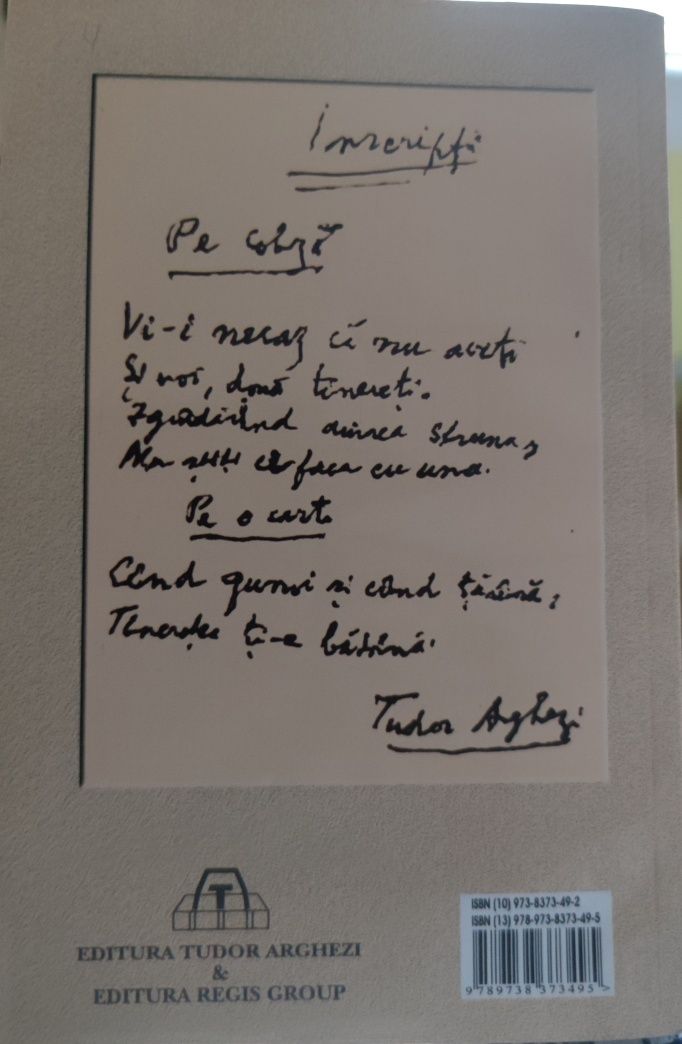 Inscripții
Pe cobză
Vi-i necaz că nu aveți
Și voi, două tinereți.
Zgîndărind struna,
N-ați știți ce face cu una.
Pe o carte
Când gunoi și când țărână,
Tinerețea ți-e bătrînă.
Tudor Arghezi
T
EDITURA TUDOR ARGHEZI
&
EDITURA REGIS GROUP
ISBN (10) 973-8373-49-2
ISBN (13) 978-973-8373-49-5
9 789738 373495 >